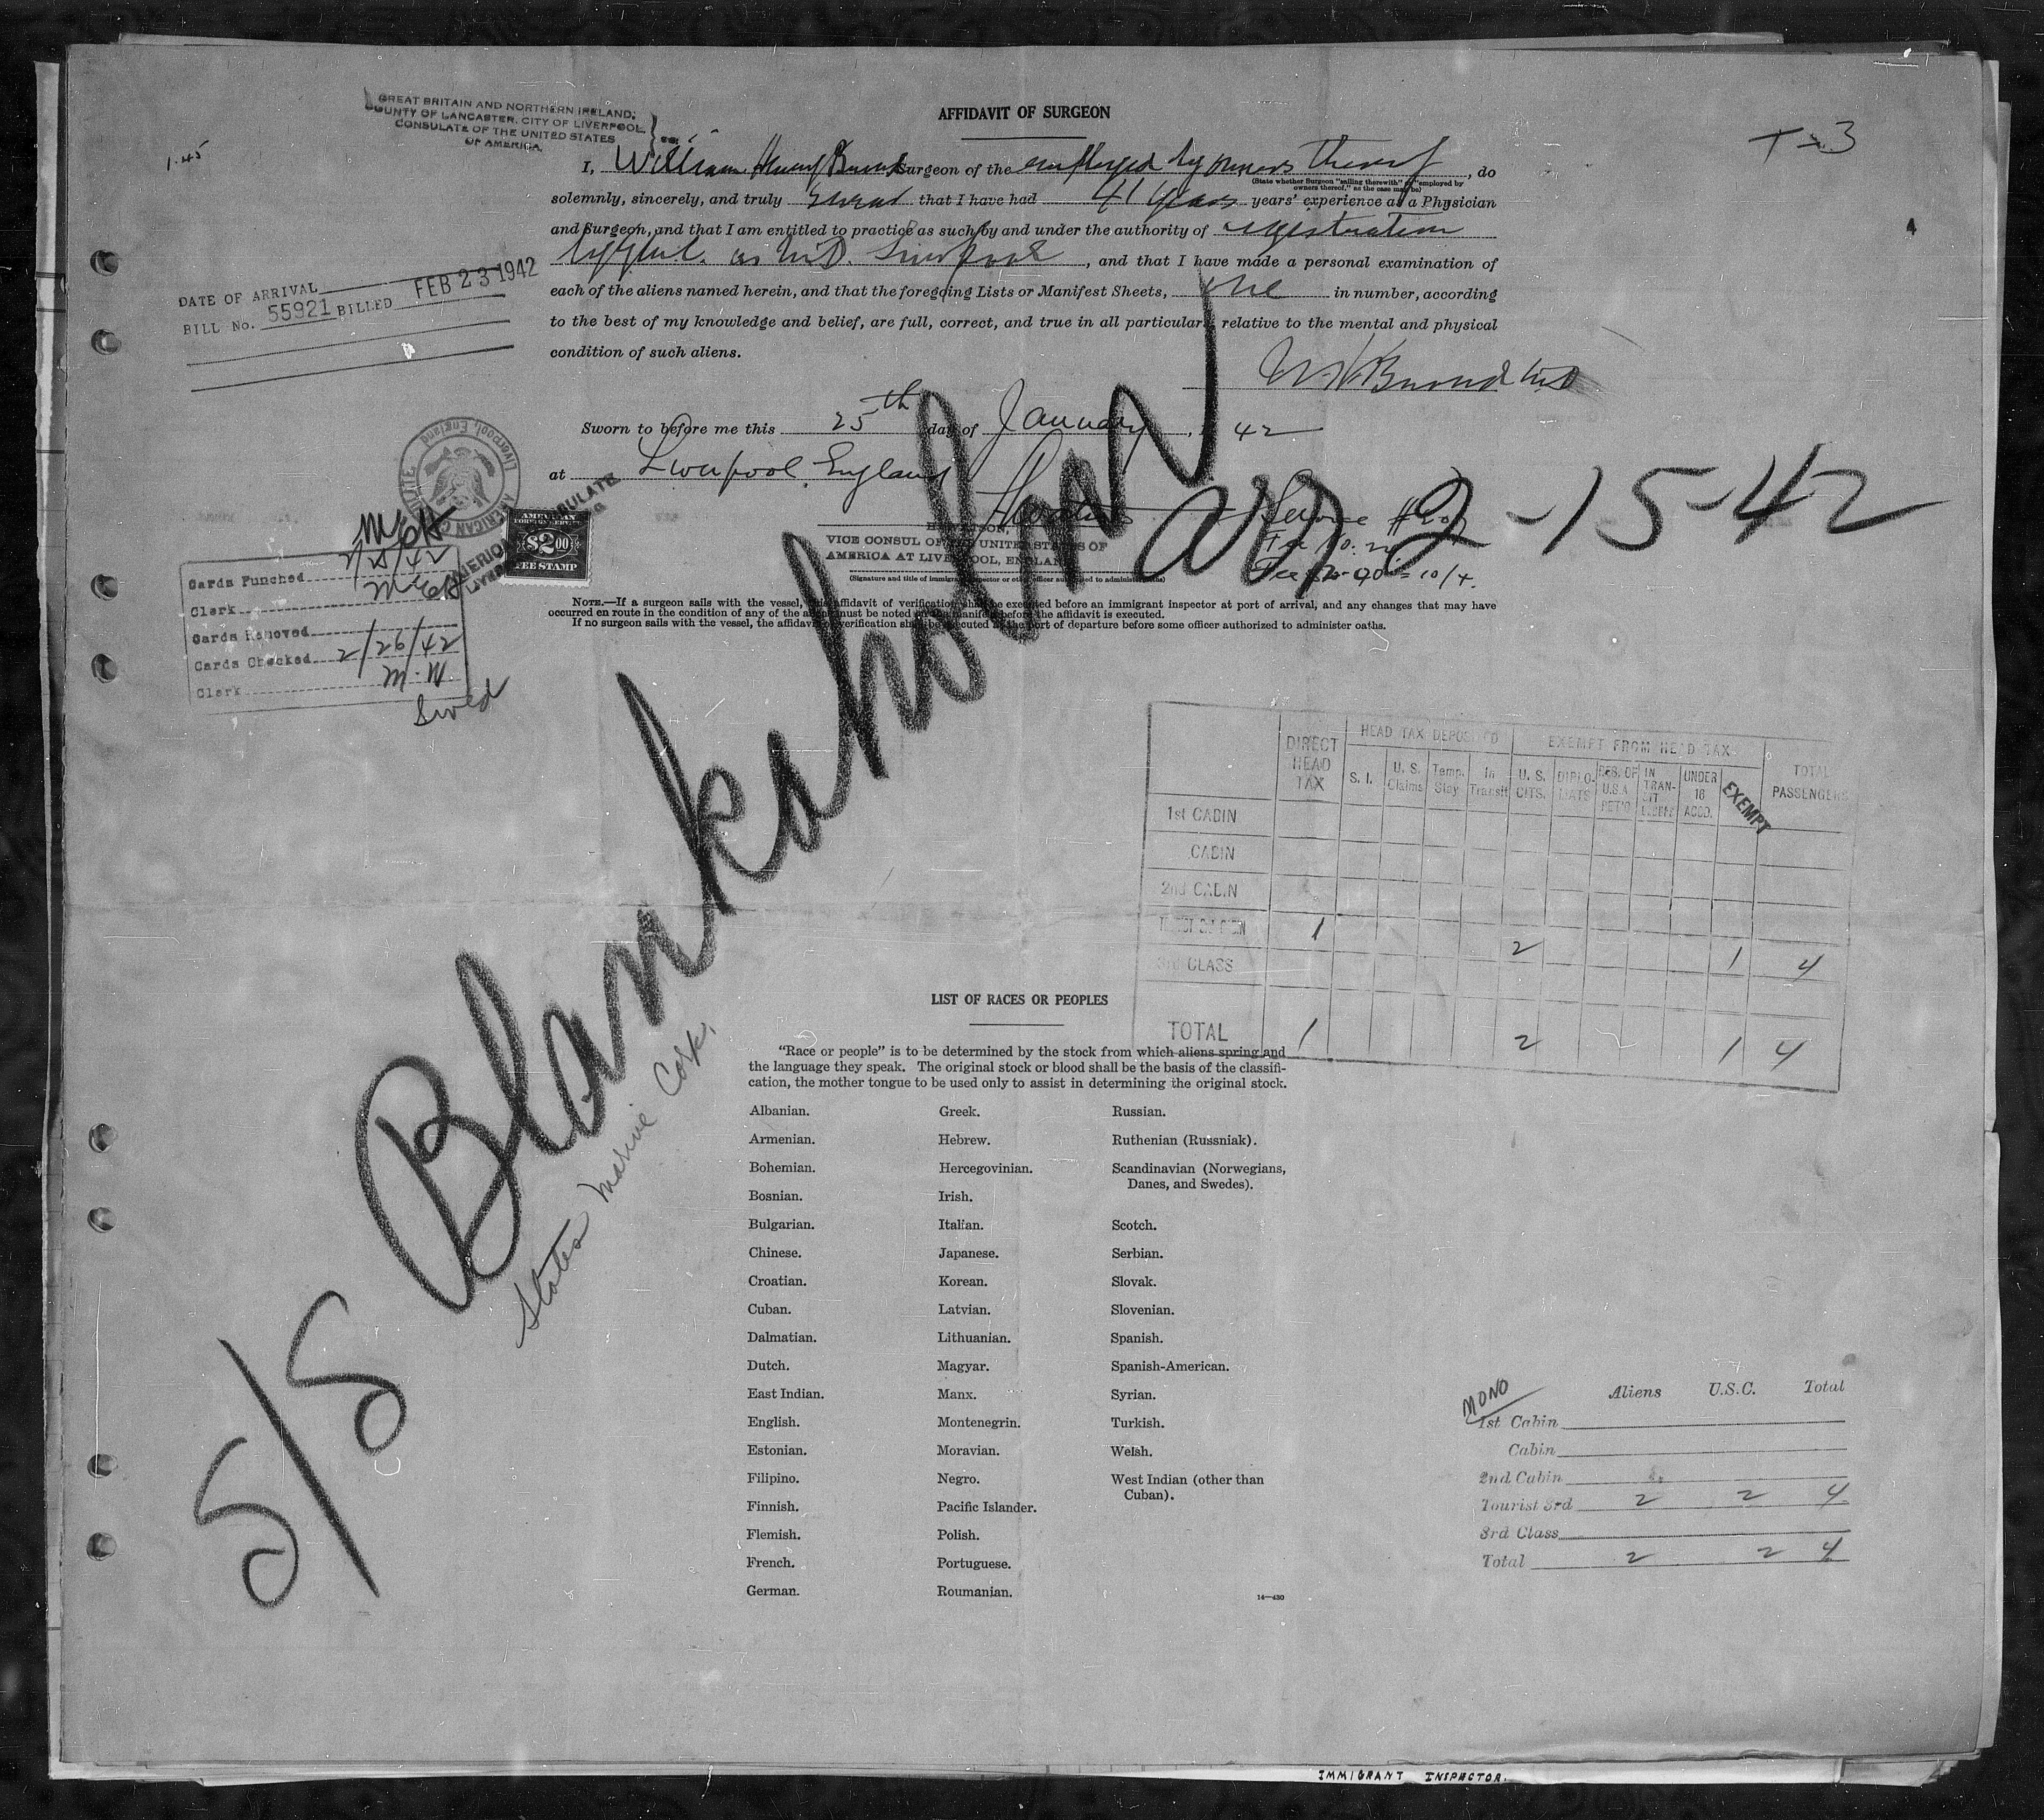 GREAT BRITAIN AND NORTHERN IRELAND;
COUNTY OF LANCASTER. CITY OF LIVERPOOL
CONSULATE OF THE UNITED STATES
OF AMERICA.
ss:
1.45
AFFIDAVIT OF SURGEON
T-3
I, William Henry Surgeon of the employed by owners thereof, do
(State whether Surgeon "sailing therewith" or "employed by
owners thereof," as the case may be)
solemnly, sincerely, and truly swear that I have had 41 years years' experience as a Physician
and Surgeon, and that I am entitled to practice as such by and under the authority of registration
as M.D. Liverpool, and that I have made a personal examination of
each of the aliens named herein, and that the foregoing Lists or Manifest Sheets, one in number, according
to the best of my knowledge and belief, are full, correct, and true in all particulars relative to the mental and physical
condition of such aliens.
DATE OF ARRIVAL
BILL No. 55921 BILLED FEB 23 1942
Sworn to before me this 25th day of January, 42
at Liverpool, England
VICE CONSUL OF THE UNITED STATES OF
AMERICA AT LIVERPOOL, ENGLAND
(Signature and title of immigrant inspector or other officer authorized to administer oaths)
arr 2-15-42
Service
= 10/4.
AMERICAN
FOREIGN SERVICE
$2.00
FEE STAMP
Liverpool, England
Cards Punched 2/25/42
Clerk
Cards Removed
Cards Checked 2/26/42
Clerk M.W.
NOTE.—If a surgeon sails with the vessel, this affidavit of verification shall be executed before an immigrant inspector at port of arrival, and any changes that may have
occurred en route in the condition of any of the aliens must be noted on the manifest before the affidavit is executed.
If no surgeon sails with the vessel, the affidavit of verification shall be executed at the port of departure before some officer authorized to administer oaths.
S/S Blankaholm
States Marine Corp.
DIRECT HEAD TAX
HEAD TAX DEPOSITED
EXEMPT FROM HEAD TAX
TOTAL PASSENGERS
S. I.
U. S. Claims
Temp. Stay
In Transit
U. S. CITS.
DIPLO-MATS
RES. OF U.S.A RET'G
IN TRAN-SIT
UNDER 16 ACCD.
EXEMPT
1st CABIN
CABIN
2nd CABIN
TOURIST 3rd CABIN 1 2 1 4
3rd CLASS
TOTAL 1 2 1 4
LIST OF RACES OR PEOPLES
"Race or people" is to be determined by the stock from which aliens spring and
the language they speak. The original stock or blood shall be the basis of the classifi-
cation, the mother tongue to be used only to assist in determining the original stock.
Albanian. Greek. Russian.
Armenian. Hebrew. Ruthenian (Russniak).
Bohemian. Hercegovinian. Scandinavian (Norwegians,
Danes, and Swedes).
Bosnian. Irish.
Bulgarian. Italian. Scotch.
Chinese. Japanese. Serbian.
Croatian. Korean. Slovak.
Cuban. Latvian. Slovenian.
Dalmatian. Lithuanian. Spanish.
Dutch. Magyar. Spanish-American.
East Indian. Manx. Syrian.
English. Montenegrin. Turkish.
Estonian. Moravian. Welsh.
Filipino. Negro. West Indian (other than
Cuban).
Finnish. Pacific Islander.
Flemish. Polish.
French. Portuguese.
German. Roumanian.
14—430
MONO
Aliens U.S.C. Total
1st Cabin
Cabin
2nd Cabin
Tourist 3rd 2 2 4
3rd Class
Total 2 2 4
IMMIGRANT INSPECTOR.